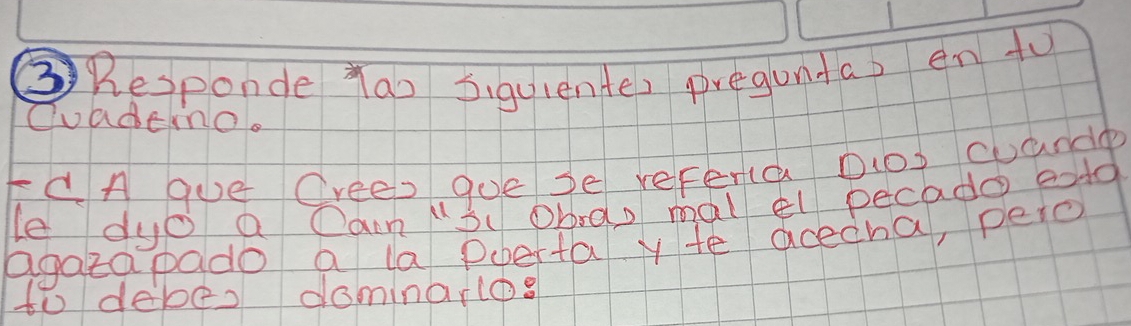 ③ Responde las siguientes preguntas en tu
Cuaderno.
- ¿ A que Crees que se referia Dios cuando
le dijo a Cain "si Obras mal el pecado esta
agazapado a la puerta y te acecha, pero
tu debes dominarlo: